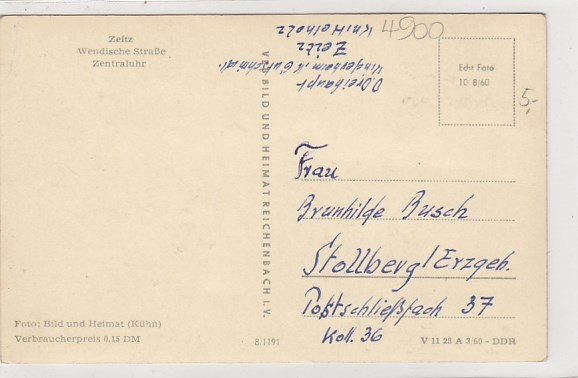 Zeitz
Wendische Straße
Zentraluhr
Foto: Bild und Heimat (Kühn)
Verbraucherpreis 0,15 DM
VEB BILD UND HEIMAT REICHENBACH I. V.
8/1191
D. Dreihaupt
Kinderheim
Zeitz
4900
Echt Foto
10 8/60
5,-
Frau
Brunhilde Busch
Stollberg/Erzgeb.
Postschließfach 37
Koll. 36
V 11 28 A 3/60 - DDR